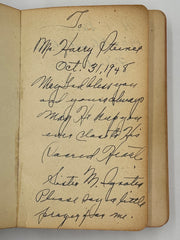 To
Mr. Harry Steiner
Oct. 31, 1948
May God bless you
and yours always
May He keep you
ever close to His
Sacred Heart
Sister M. Ignatia
Please say a little
prayer for me.